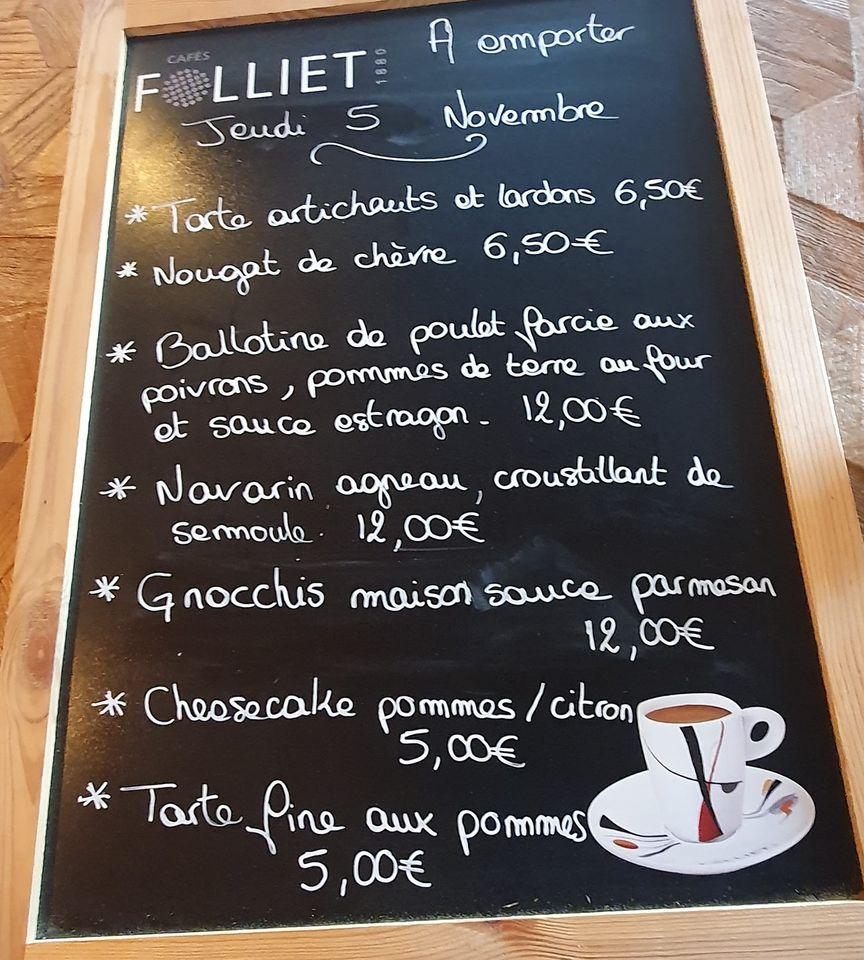 CAFÉS
FOLLIET 1880
A emporter
Jeudi 5 Novembre
* Tarte artichauts et lardons 6,50€
* Nougat de chèvre 6,50€
* Ballotine de poulet farcie aux
poivrons, pommes de terre au four
et sauce estragon. 12,00€
* Navarin agneau, croustillant de
semoule. 12,00€
* Gnocchis maison sauce parmesan
12,00€
* Cheesecake pommes / citron
5,00€
* Tarte fine aux pommes
5,00€